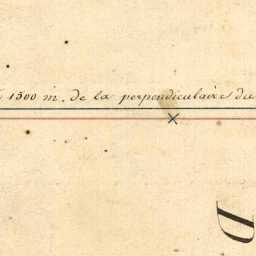 1500 m. de la perpendiculaire du
D